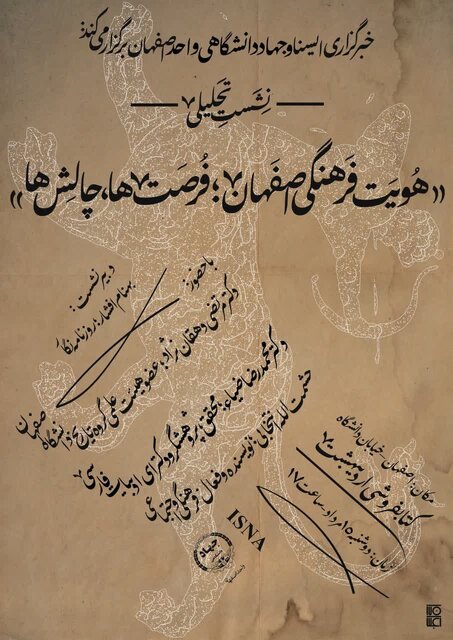 خبرگزاری ایسنا و جهاد دانشگاهی واحد اصفهان برگزار می‌کند:
نشست تحلیلی
«هویت فرهنگی اصفهان؛ فرصت‌ها، چالش‌ها»
دبیر نشست:
بهنام افشار؛ روزنامه‌نگار
با حضور:
دکتر مرتضی دهقان نژاد؛ عضو هیئت علمی گروه تاریخ دانشگاه اصفهان
دکتر محمدرضا ضیاء؛ محقق، پژوهشگر و دکترای ادبیات فارسی
حشمت الله انتخابی؛ نویسنده و فعال فرهنگی و اجتماعی
مکان: اصفهان، خیابان دانشگاه
کتابفروشی اردیبهشت
زمان: دوشنبه ۱۵ مرداد، ساعت ۱۷
ISNA
جهاد